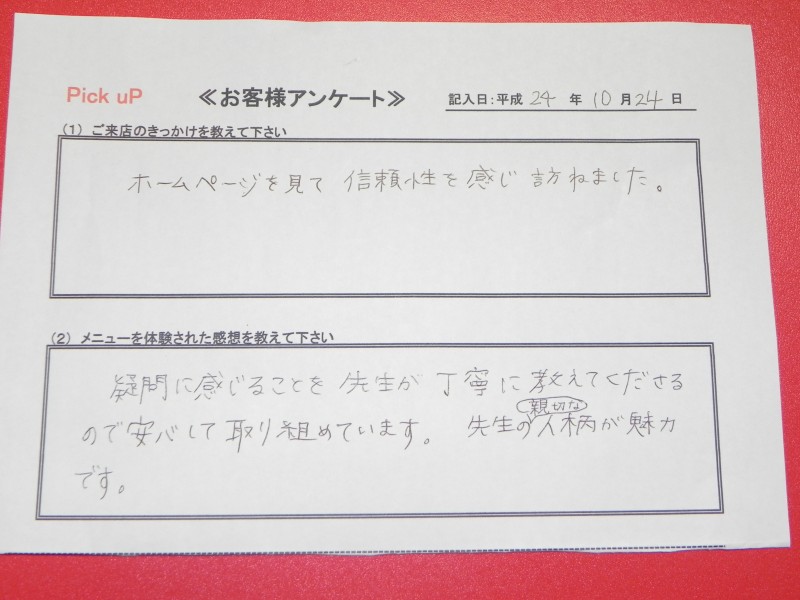 Pick uP ≪お客様アンケート≫ 記入日:平成 24 年 10 月 24 日
(1) ご来店のきっかけを教えて下さい
ホームページを見て 信頼性を感じ 訪ねました。
(2) メニューを体験された感想を教えて下さい
疑問に感じることを 先生が 丁寧に 教えてくださる
ので安心して取り組めています。 先生の親切な人柄が魅力
です。